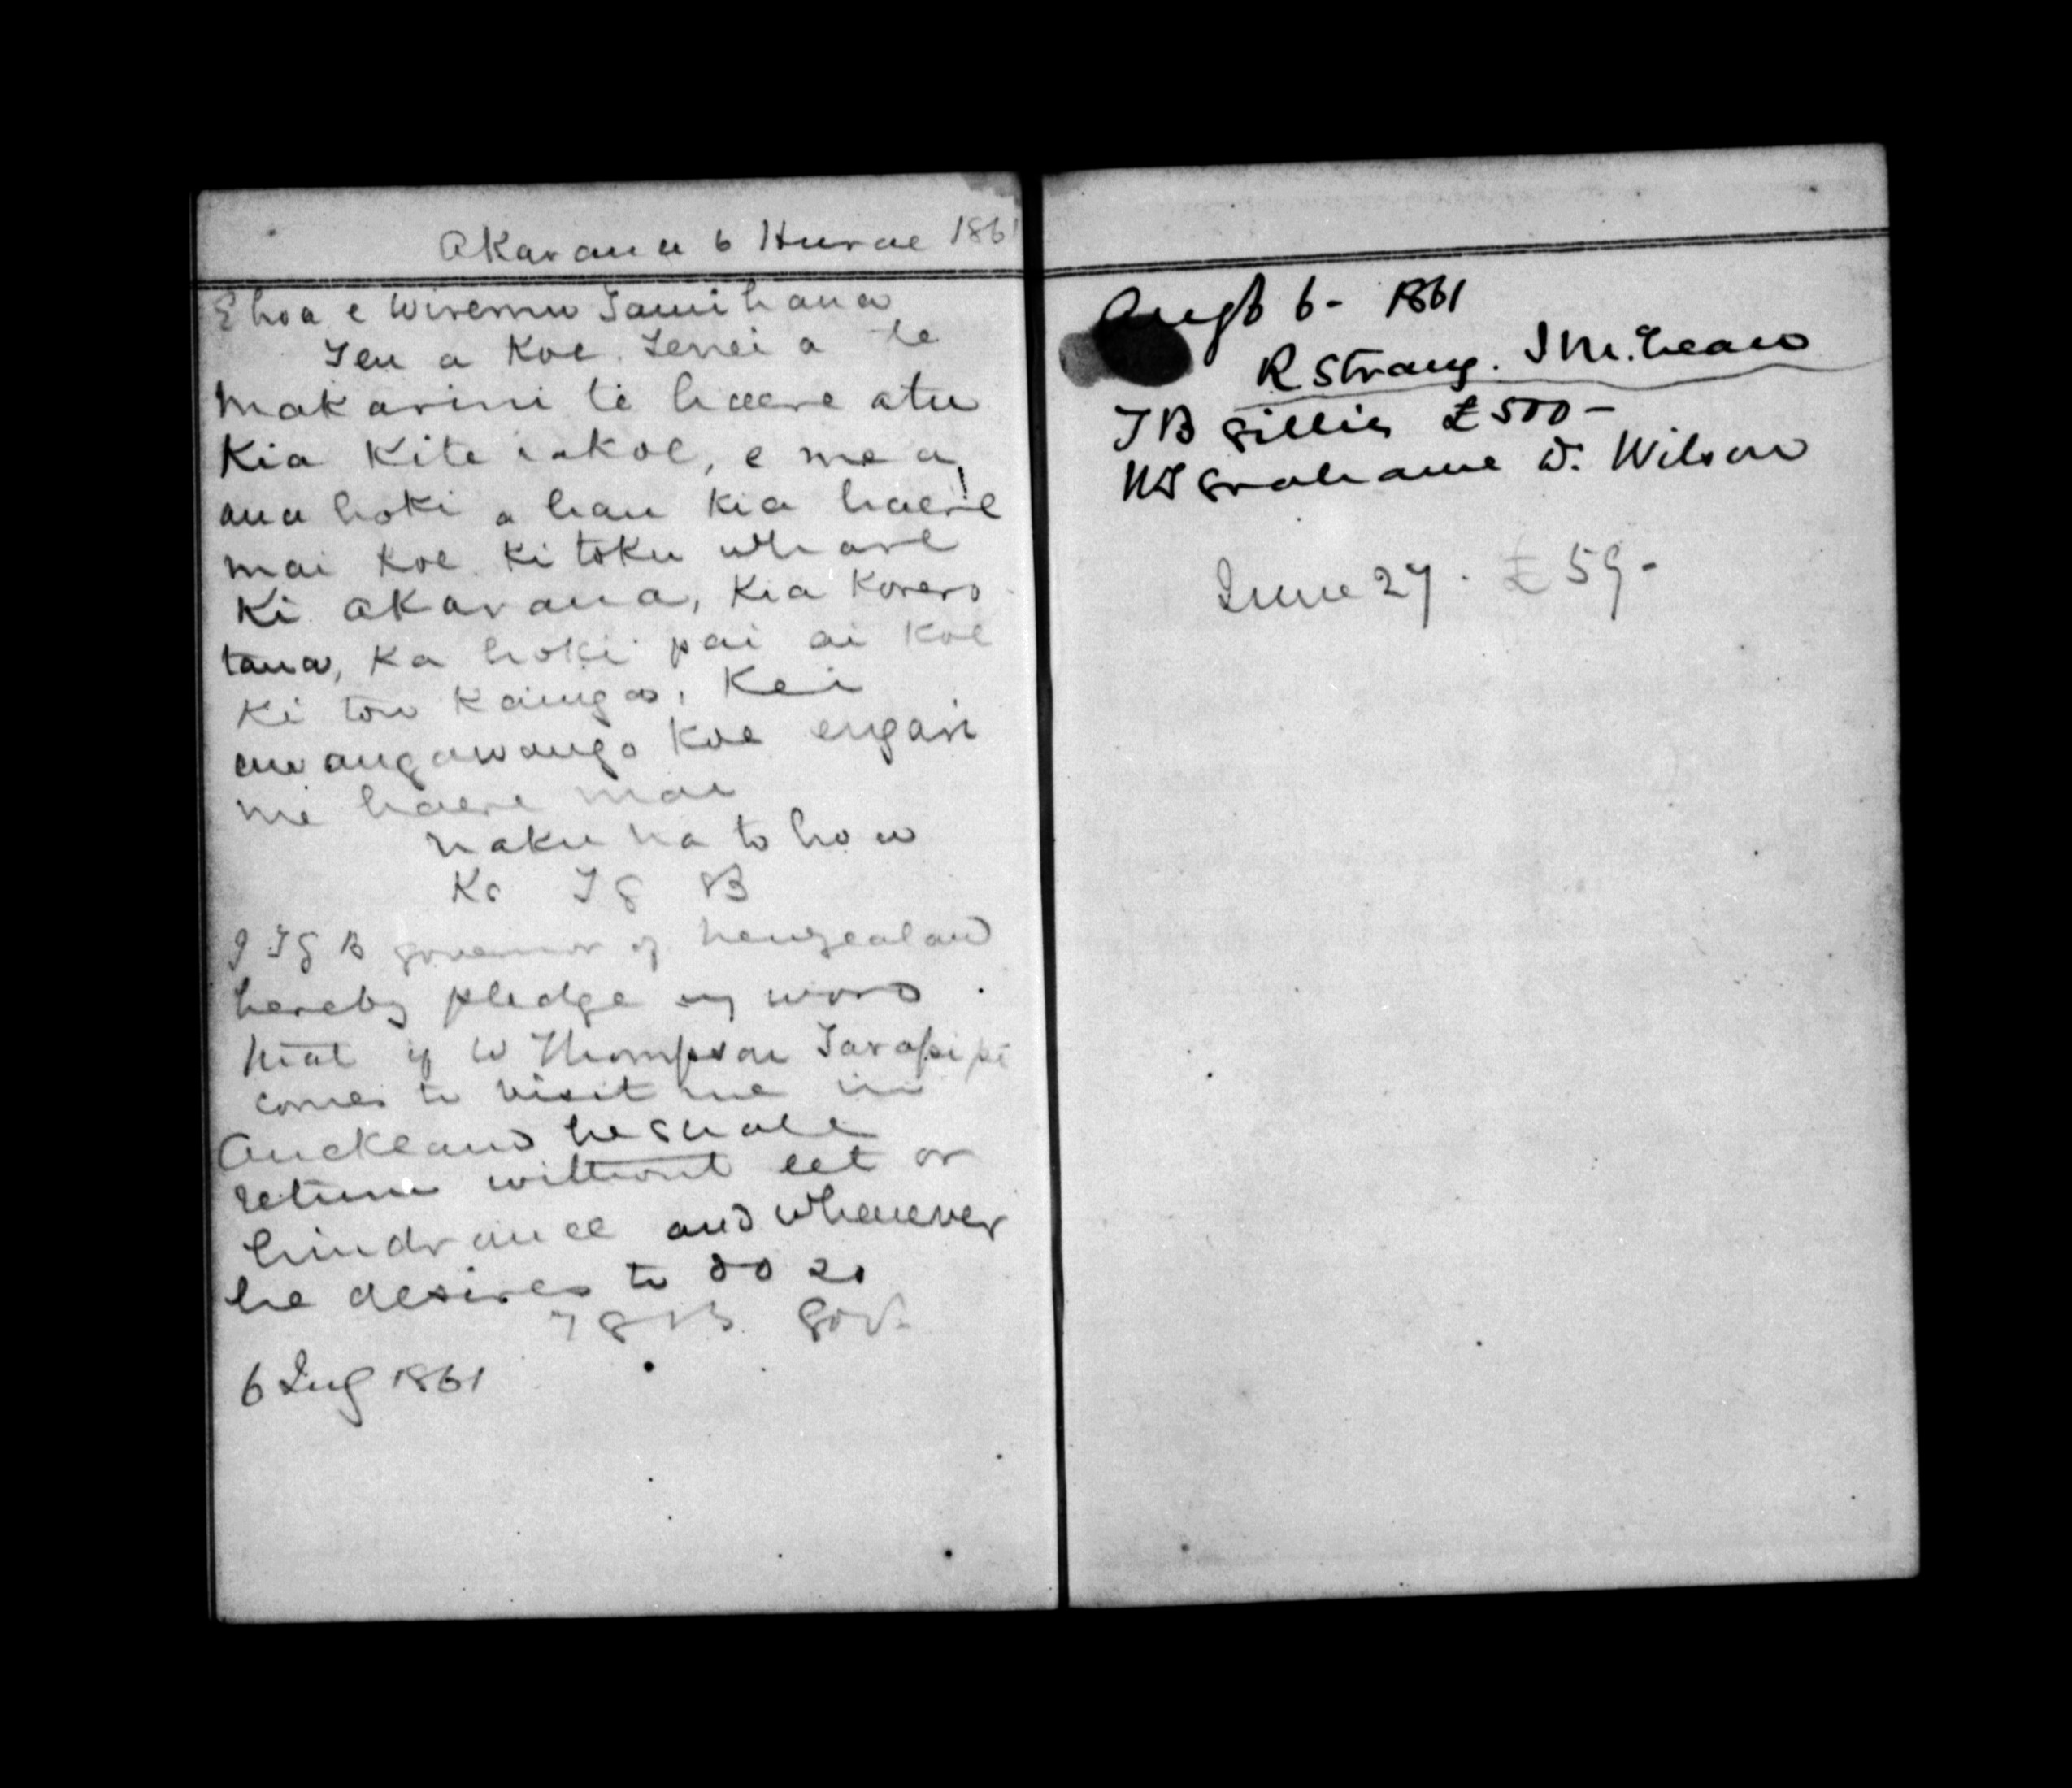 Akarana 6 Hurae 1861
E hoa e Wiremu Tamihana
Ten a Koe. Tenei a te
Makarini te haere atu
Kia Kite i a koe, e mea
ana hoki a hau kia haere
mai koe ki toku whare
Ki Akarana, Kia Korero
taua, Ka hoki pai ai koe
Ki tou Kainga, Kei
awangawanga koe engari
me haere mai
naku na to hoa
Ko T G B
I T G B governor of Newzealand
hereby pledge my word
that if W Thompson Tarapipi
comes to visit me in
Auckland he shall
return without let or
hindrance and whenever
he desires to do so
T G B Gov.
6 Aug 1861
Augt 6 - 1861
R Strang. J McLean
T B Gillies £500 -
WS Grahame W. Wilson
June 27. £59 -